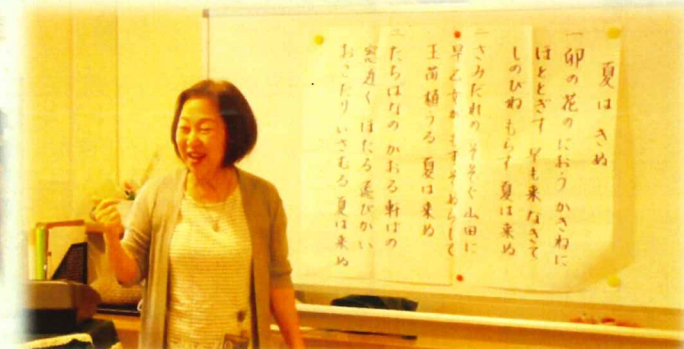 夏は きぬ
一 卯の花の におう かきねに
ほととぎす 早も来なきて
しのびね もらす 夏は来ぬ
二 さみだれの そそぐ 山田に
早乙女が もすそぬらして
玉苗植うる 夏は来ぬ
三 たちばなの かおる 軒ばの
窓近く ほたる 飛びかい
おこたり いさむる 夏は来ぬ